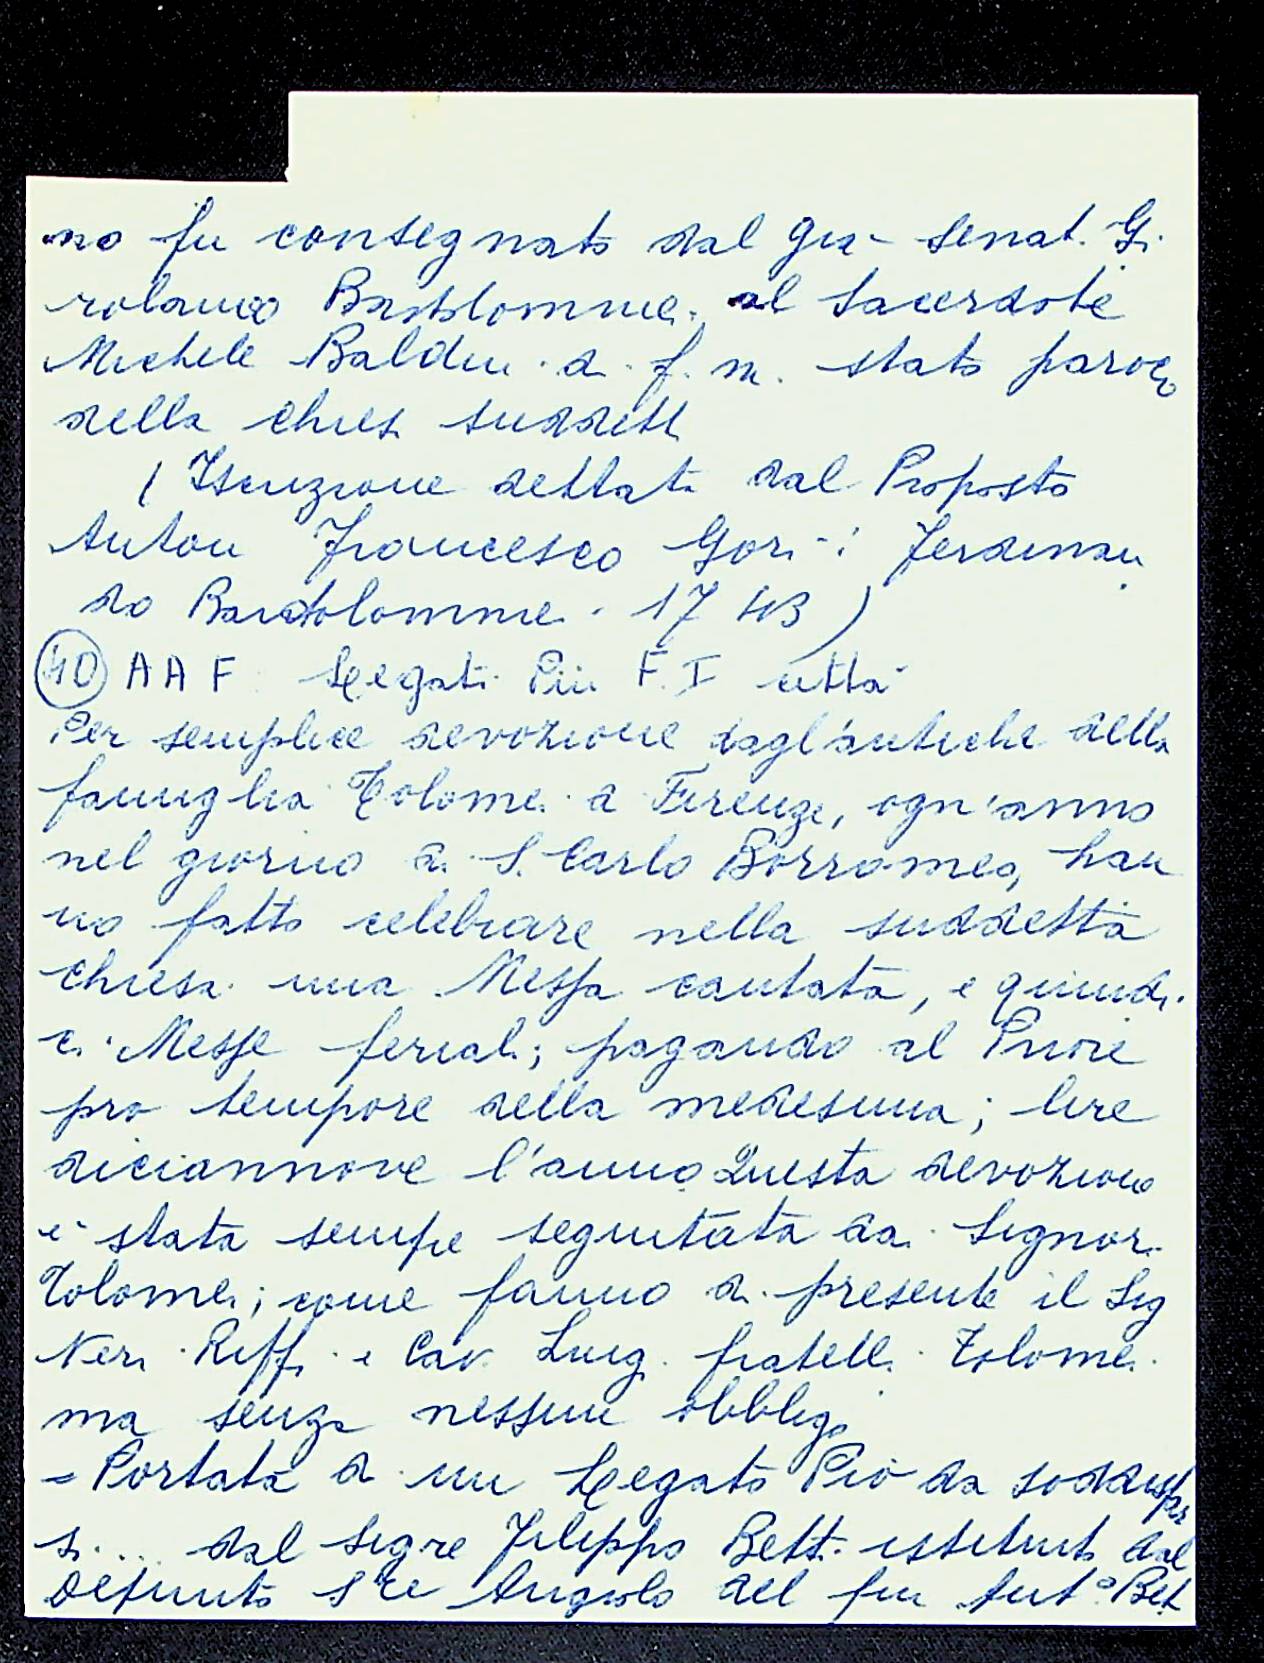 no fu consegnato dal già senat. Gi
rolamo Bartolommei al Sacerdote
Michele Baldin di f. m. stato paroco
della chiesa suddett
(Iscrizione dettata dal Proposto
Anton Francesco Gori - : Ferdinan
do Bartolommei. 1743)
(40) AAF Legati Pii F. I città
Per semplice devozione dagl'antichi della
famiglia Tolomei di Firenze, ogn'anno
nel giorno di S. Carlo Borromeo, han
no fatto celebrare nella suddetta
chiesa una Messa cantata, e quindi
ci Messe feriali; pagando al Priore
pro tempore della medesima; lire
diciannove l'anno Questa devozione
è stata sempre seguitata dai Signori
Tolomei; come fanno di presente il Sig
Neri Riff. e Cav. Luigi fratelli Tolomei
ma senza nessun obbligo
= Portata di un Legato Pio da soddisfar
si.... dal Sigre Filippo Betti istituito dal
Defunto Sre Angiolo del fu Anto Bet